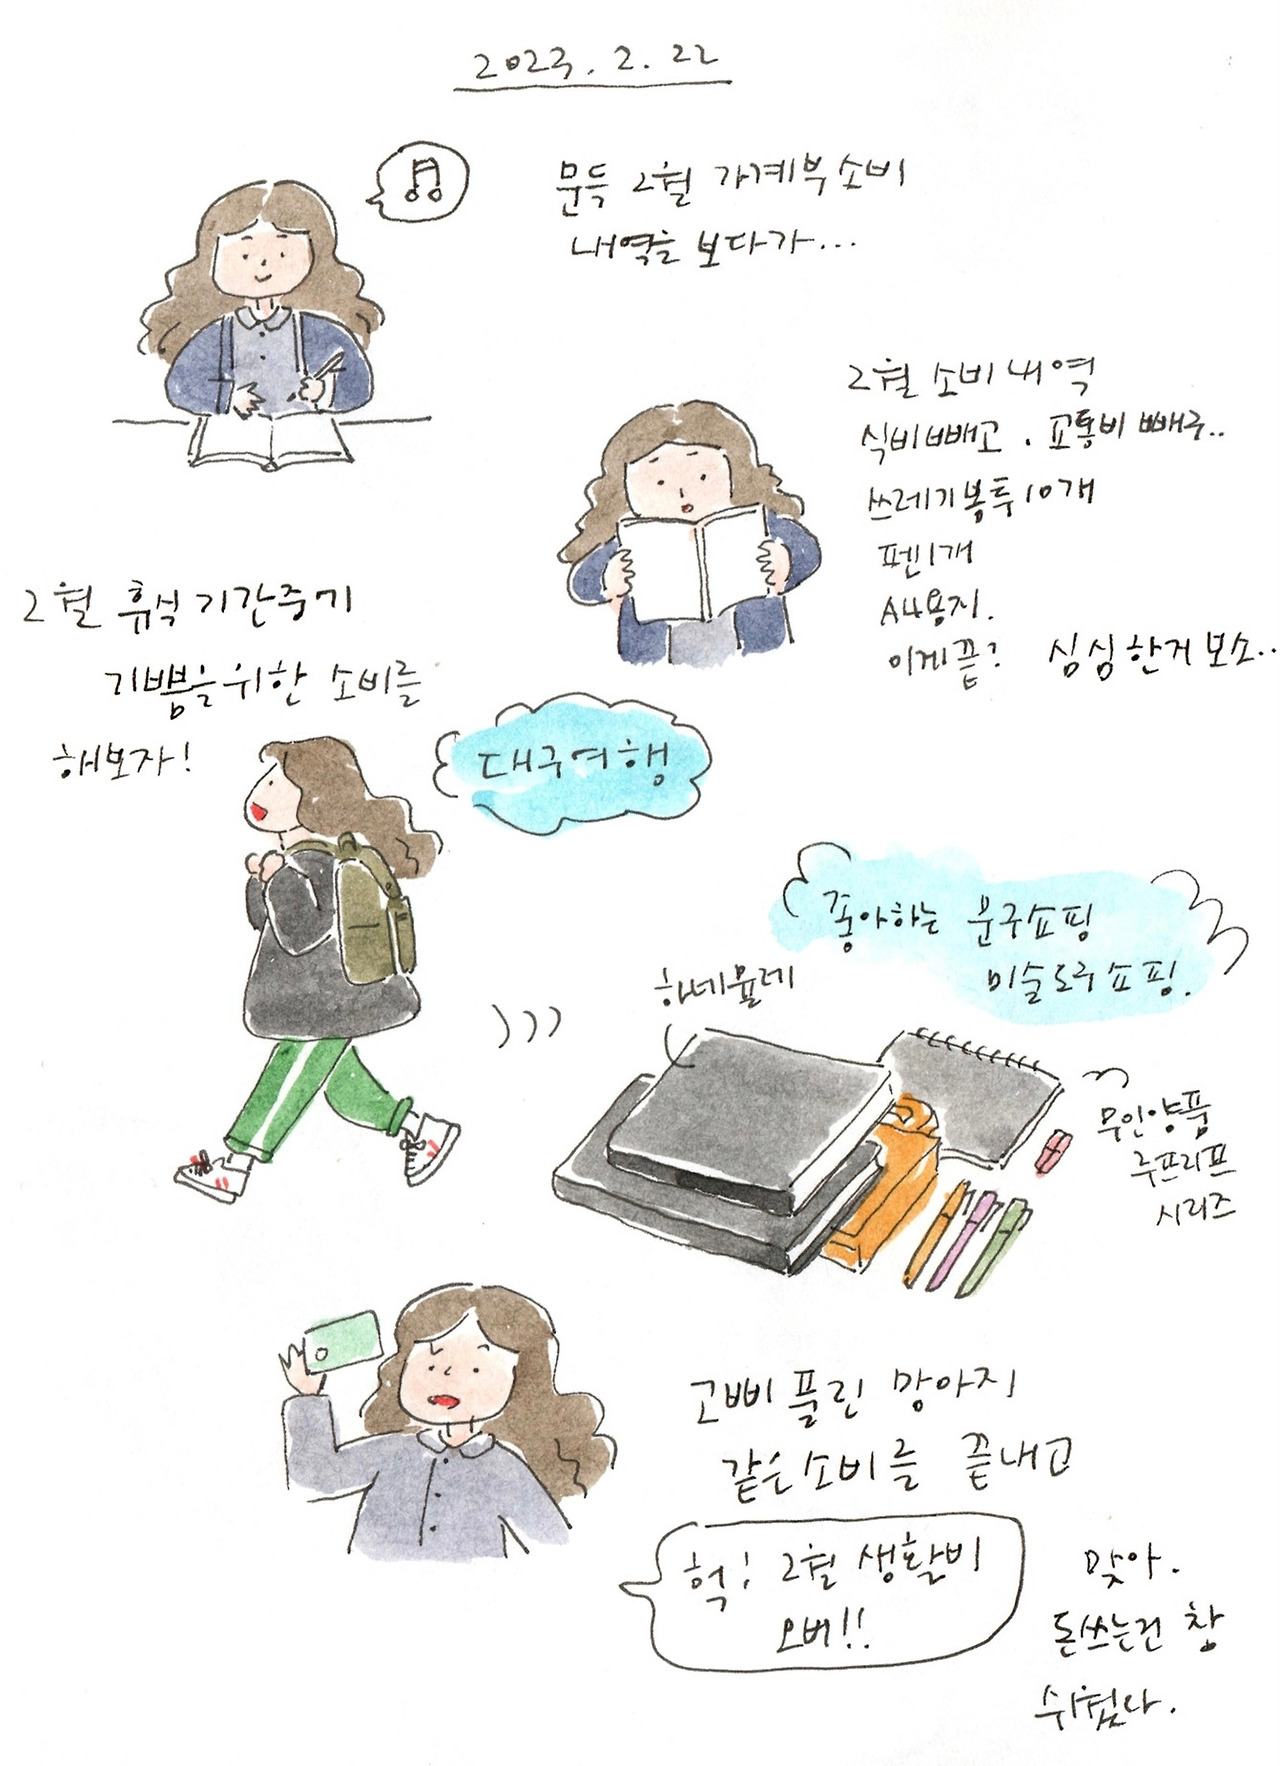 2023. 2. 22
문득 2월 가계부 소비
내역을 보다가...
2월 소비 내역
식비 빼고 . 교통비 빼구..
쓰레기봉투 10개
펜 1개
A4용지.
이게 끝? 심심한거 보소..
2월 휴식 기간중기
기쁨을 위한 소비를
해보자!
대구여행
좋아하는 문구쇼핑
미술도구 쇼핑.
하네뮬레
무인양품
루프리프
시리즈
고삐 풀린 망아지
같은 소비를 끝내고
헉! 2월 생활비
오버!!
맞아.
돈쓰는건 참
쉬웠나.